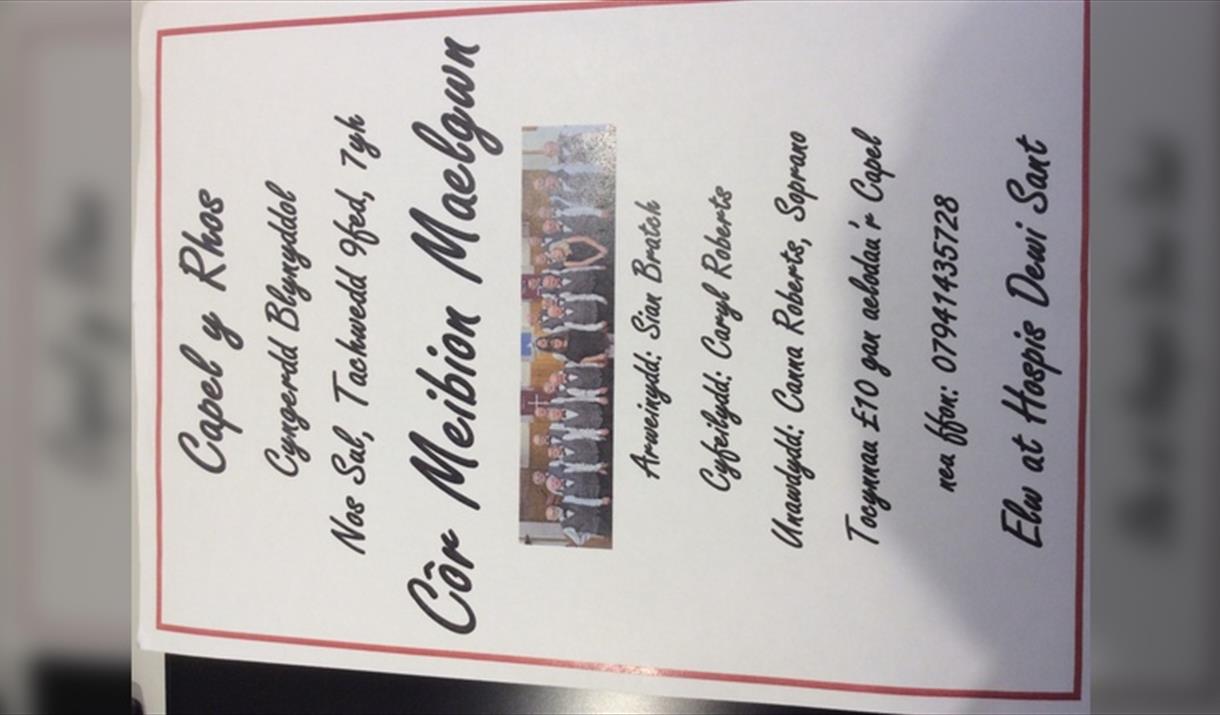 Capel y Rhos
Cyngerdd Blynyddol
Nos Sul, Tachwedd 9fed, 7yh
Côr Meibion Maelgwn
Arweinydd: Sian Bratch
Cyfeilydd: Caryl Roberts
Unawdydd: Canna Roberts, Soprano
Tocynnau £10 gan aelodau'r Capel
neu ffôn: 07941435728
Elw at Hospis Dewi Sant